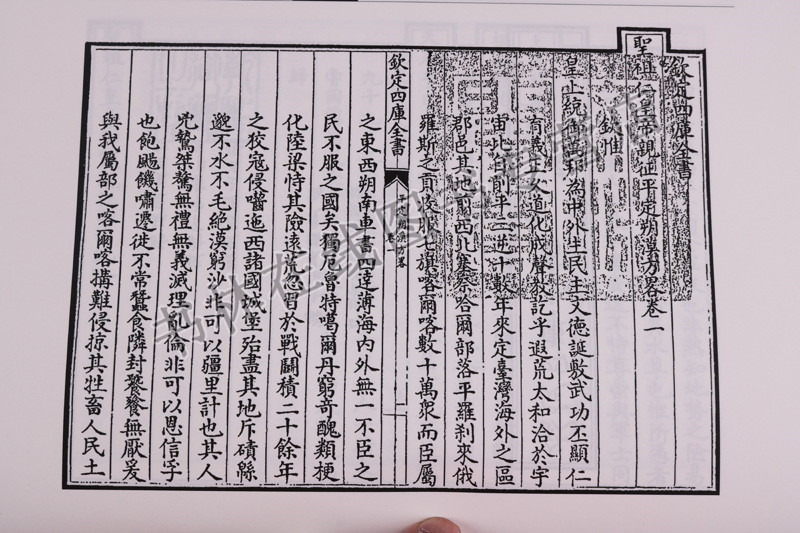 欽定四庫全書
聖祖仁皇帝親征平定朔漠方畧卷一
欽惟
皇上統御萬邦為中外生民主文德誕敷武功丕顯仁
育義正文道化成聲教訖乎遐荒太和洽於宇
宙比自削平三逆十數年來定臺灣海外之區
郡邑其地剪西北塞察哈爾部落平羅刹來俄
羅斯之貢收服七旗喀爾喀數十萬衆而臣屬
欽定四庫全書
之東西朔南車書四達薄海内外無一不臣之
民不服之國矣獨厄魯特噶爾丹窮奇醜類梗
化陸梁恃其險遠荒忽習於戰鬬積二十餘年
之狡寇侵嚙迤西諸國城堡殆盡其地斥磧緜
邈不水不毛絶漠窮沙非可以疆里計也其人
兇鷙桀驁無禮無義滅理亂倫非可以恩信孚
也飽颺饑嘯遷徙不常蠶食隣封饕餮無厭爰
與我屬部之喀爾喀搆難侵掠其牲畜人民土
书林在线图书